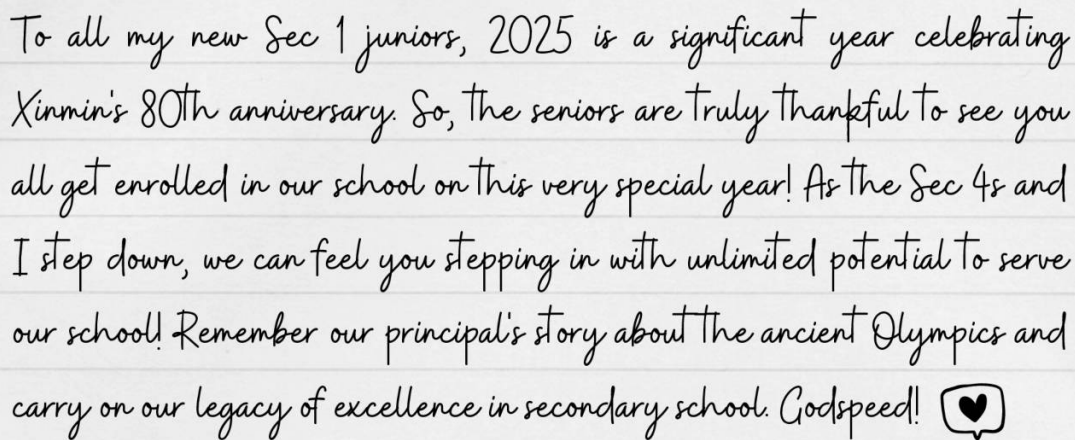 To all my new Sec 1 juniors, 2025 is a significant year celebrating
Xinmin's 80th anniversary. So, the seniors are truly thankful to see you
all get enrolled in our school on this very special year! As the Sec 4s and
I step down, we can feel you stepping in with unlimited potential to serve
our school! Remember our principal's story about the ancient Olympics and
carry on our legacy of excellence in secondary school. Godspeed!